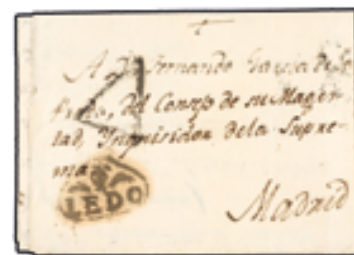 A Dn Fernando Garcia de
del Consejo de su Mages-
tad, Ynquisidor de la Supre-
ma
4
LEDO
Madrid